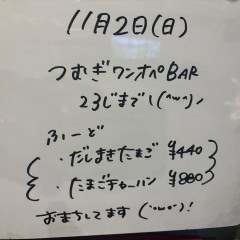 11月2日(日)
つむぎワンオペBAR
23じまで\(^ω^)ノ
ふーど
・だしまきたまご ¥440
・たまごチャーハン ¥880
おまちしてます(´ω`)!